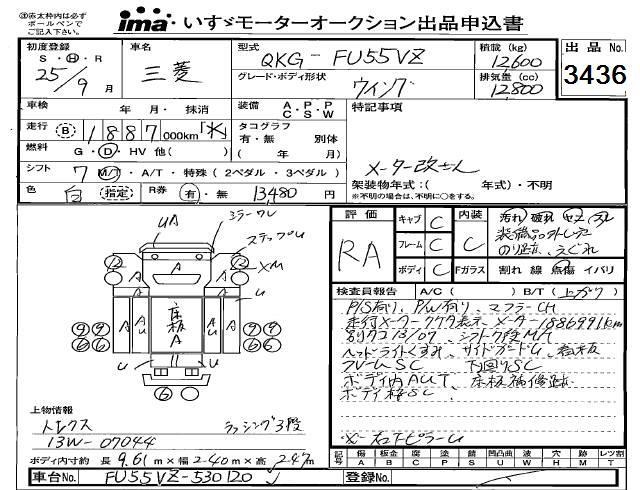 ㊟赤太枠内は必ず
ボールペンにて
ご記入下さい。
ima いすゞモーターオークション出品申込書
初度登録
S・H・R
25/9 月
車名
三菱
型式
QKG-FU55VZ
グレード・ボディ形状
ウイング
積載(kg)
12600
排気量(cc)
12800
出品No.
3436
車検 年 月・抹消
走行 (B) 1887 000km
燃料 G・D・HV 他( )
シフト 7 M/T・A/T・特殊(2ペダル・3ペダル)
色 白 (指定) R券 有・無 13480 円
装備 A・P・P
C S W
タコグラフ
有・無 別体
( 年 月)
特記事項
メーター改ざん
架装物年式:( 年式)・不明
※不明の場合は、不明に○をする。
評価
RA
キャブ C
フレーム C
ボディ C
内装
C
Fガラス
汚れ 破れ セマ
のり跡、えぐれ
割れ 線 飛傷 イバリ
検査員報告 A/C( ) B/T(上がり)
P/S有り、P/W有り、マフラーCH
走行メーターケタ表示 メーター1886991km
別タコ13/07、シフト7段M/T
ヘッドライトくすみ、サイドガードU
フレームSC 下回りSC
ボディ内AUT、床板補修跡
ボディ枠SC
ミラーワレ
UA
ステップU
XM
床板A
上物情報
トレクス
13W-07044
ラッシング3段
ボディ内寸約 長9.61m×幅2.40m×高2.47m
記号 傷A 板金B 腐C 塗P 錆S 凹凸曲U 波W 穴H 跡M レツ割T
車台No. FU55VZ-530120
登録No.